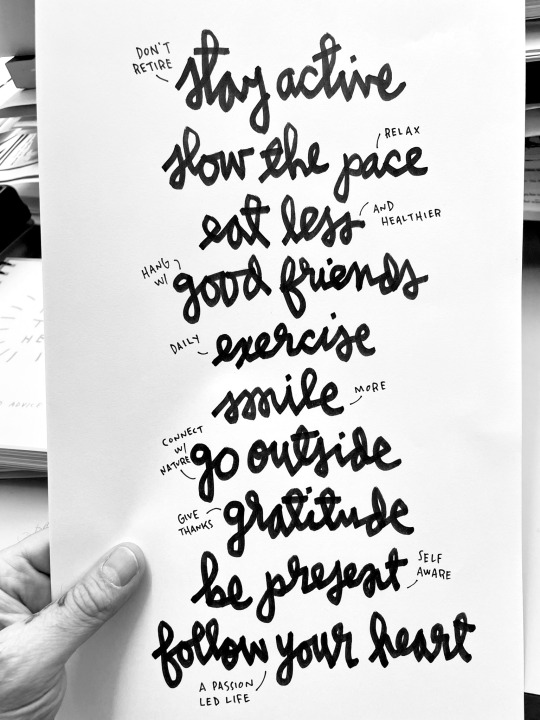 DON'T
RETIRE
stay active
RELAX
slow the pace
eat less
AND
HEALTHIER
HANG
W/
good friends
DAILY
exercise
smile
MORE
CONNECT
W/
NATURE
go outside
GIVE
THANKS
gratitude
be present
SELF
AWARE
follow your heart
A PASSION
LED LIFE
ADVICE